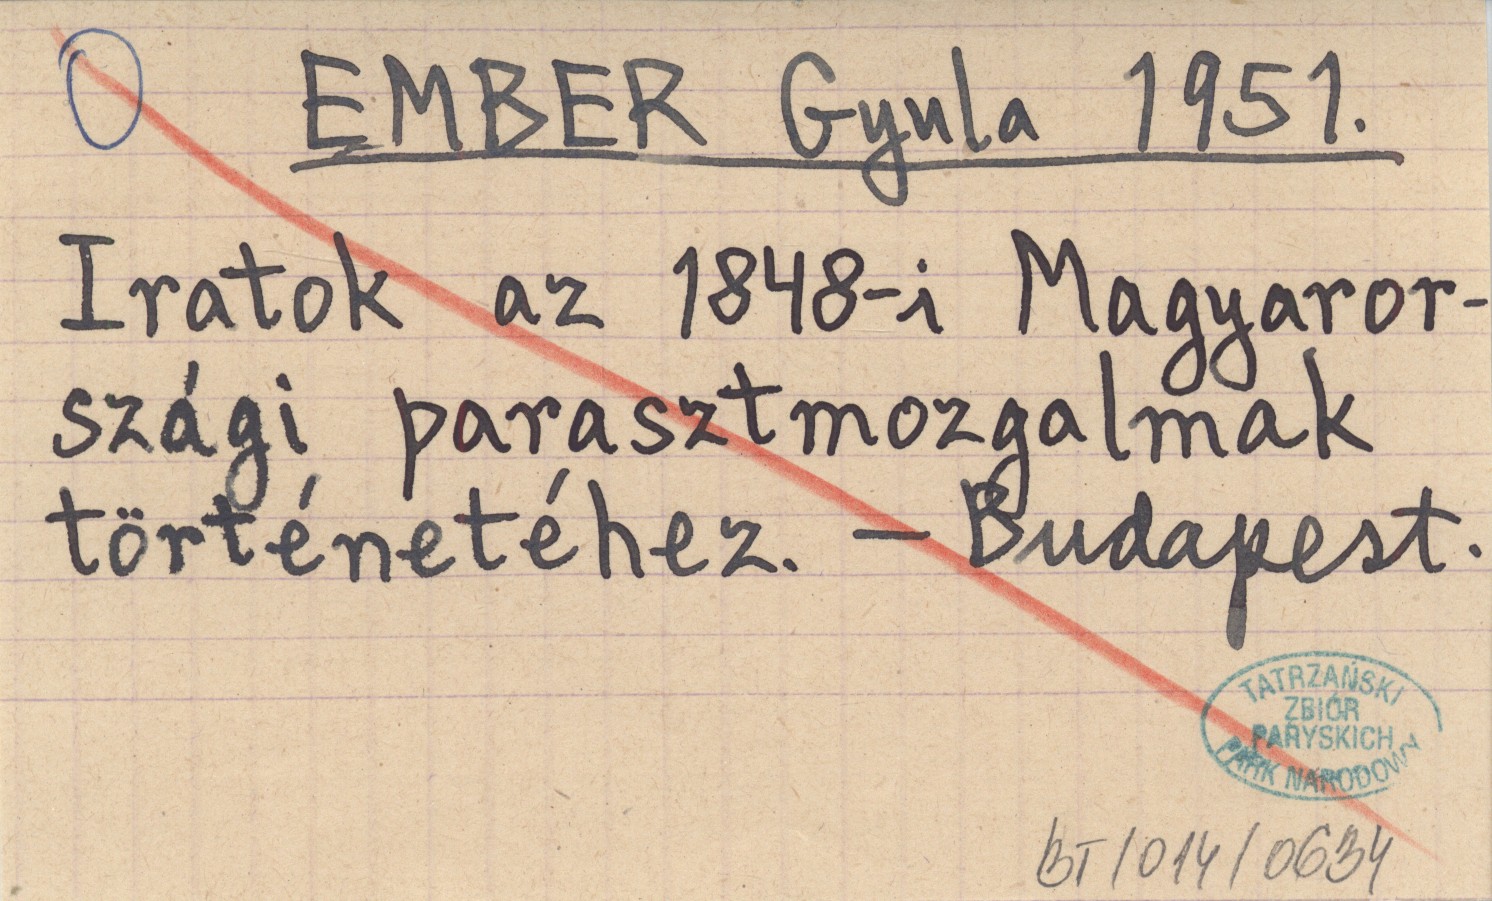 EMBER Gyula 1951.
Iratok az 1848-i Magyaror-
szági parasztmozgalmak
történetéhez. — Budapest.
TATRZAŃSKI
ZBIÓR
PARYSKICH
PARK NARODOWY
BT/014/0634